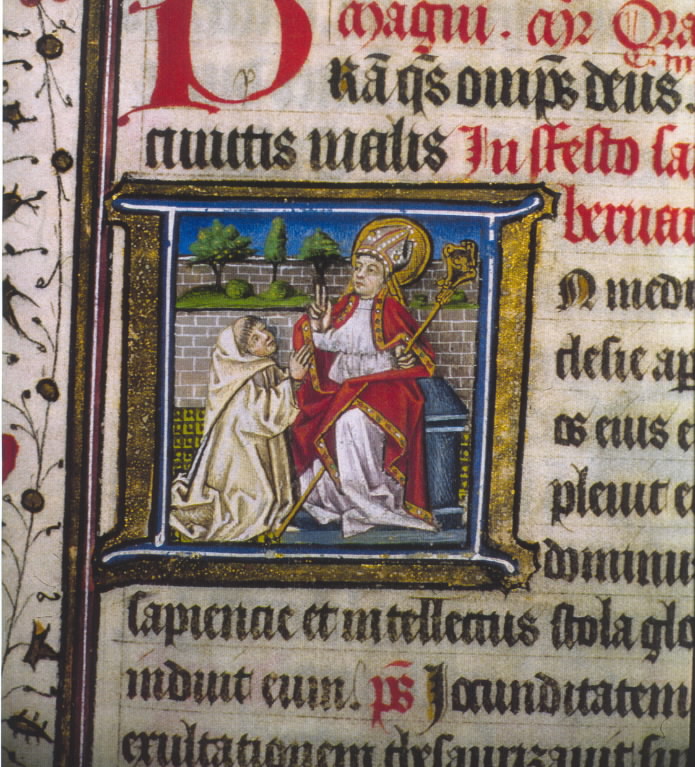 magni. Or̄ Ora
P Rā q̄s omp̄s deus
cunctis malis In ffesto sa
bernar
I N medi
clesie ap
os eius e
pleuit e
dominus
sapiencie et intellectus stola glo
induit eum. p̄s Iocunditatem
exultationem thesaurizauit sup